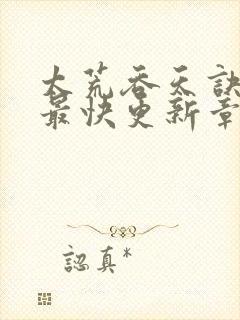 大荒吞天訣
最快更新章
認真*